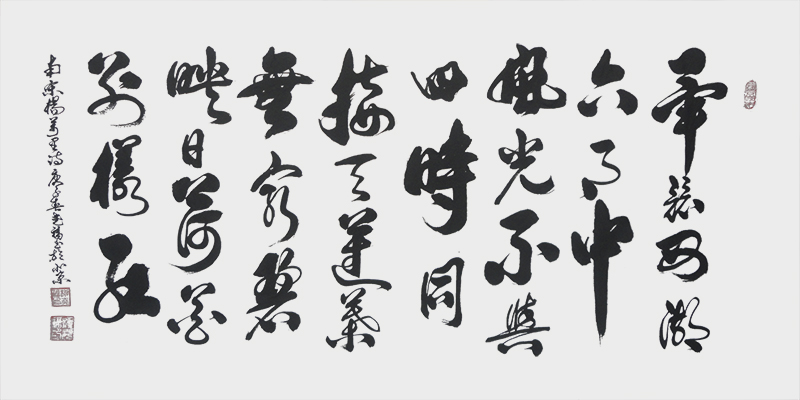 畢竟西湖
六月中
風光不與
四時同
接天蓮葉
無窮碧
映日荷花
別樣紅
南宋楊萬里詩 於北京